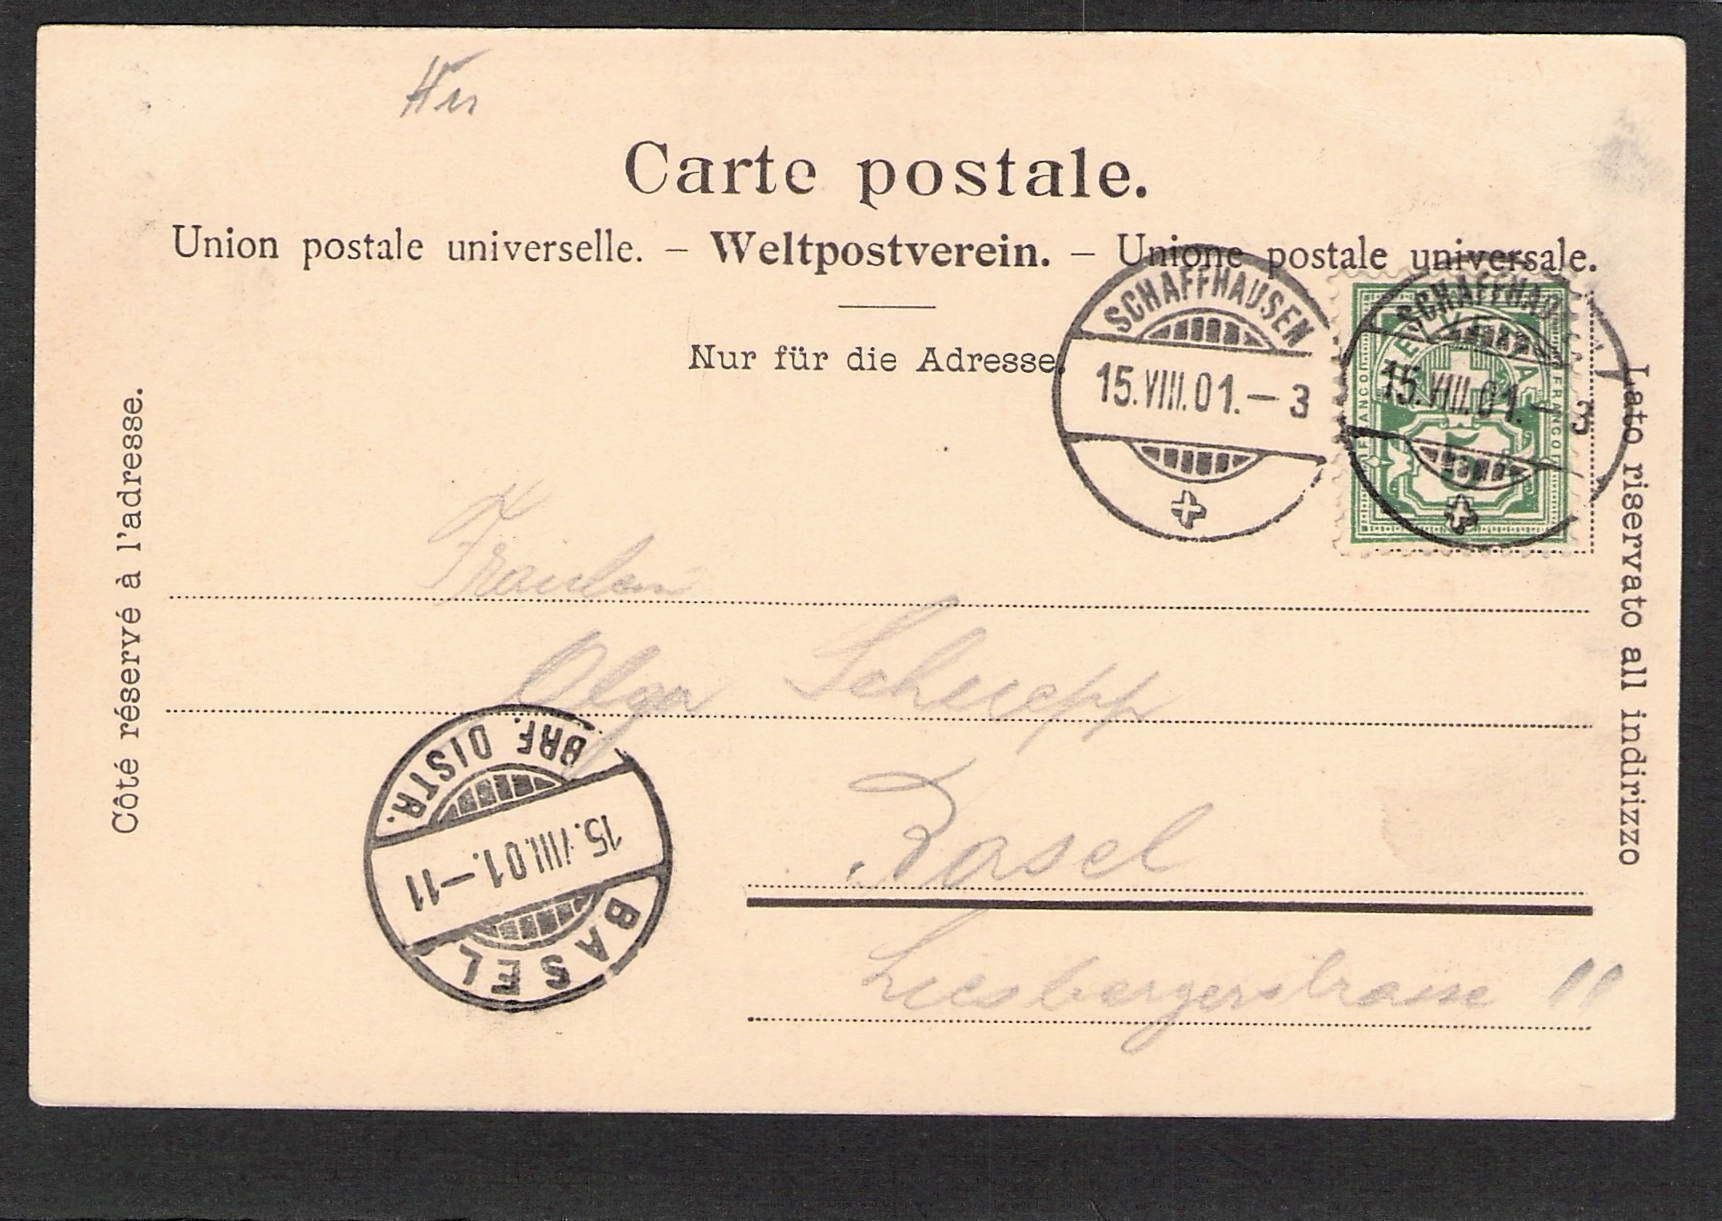 Carte postale.
Union postale universelle. – Weltpostverein. – Unione postale universale.
Nur für die Adresse.
SCHAFFHAUSEN
15.VIII.01.–3
SCHAFFHAUSEN
15.VIII.01.–3
FRANCO
FRANCO
5
Côté réservé à l'adresse.
Lato riservato all indirizzo
Fräulein
Olga Schnepp
Basel
Liesbergerstrasse 11
BRF. DISTR.
15.VIII.01.–11
BASEL